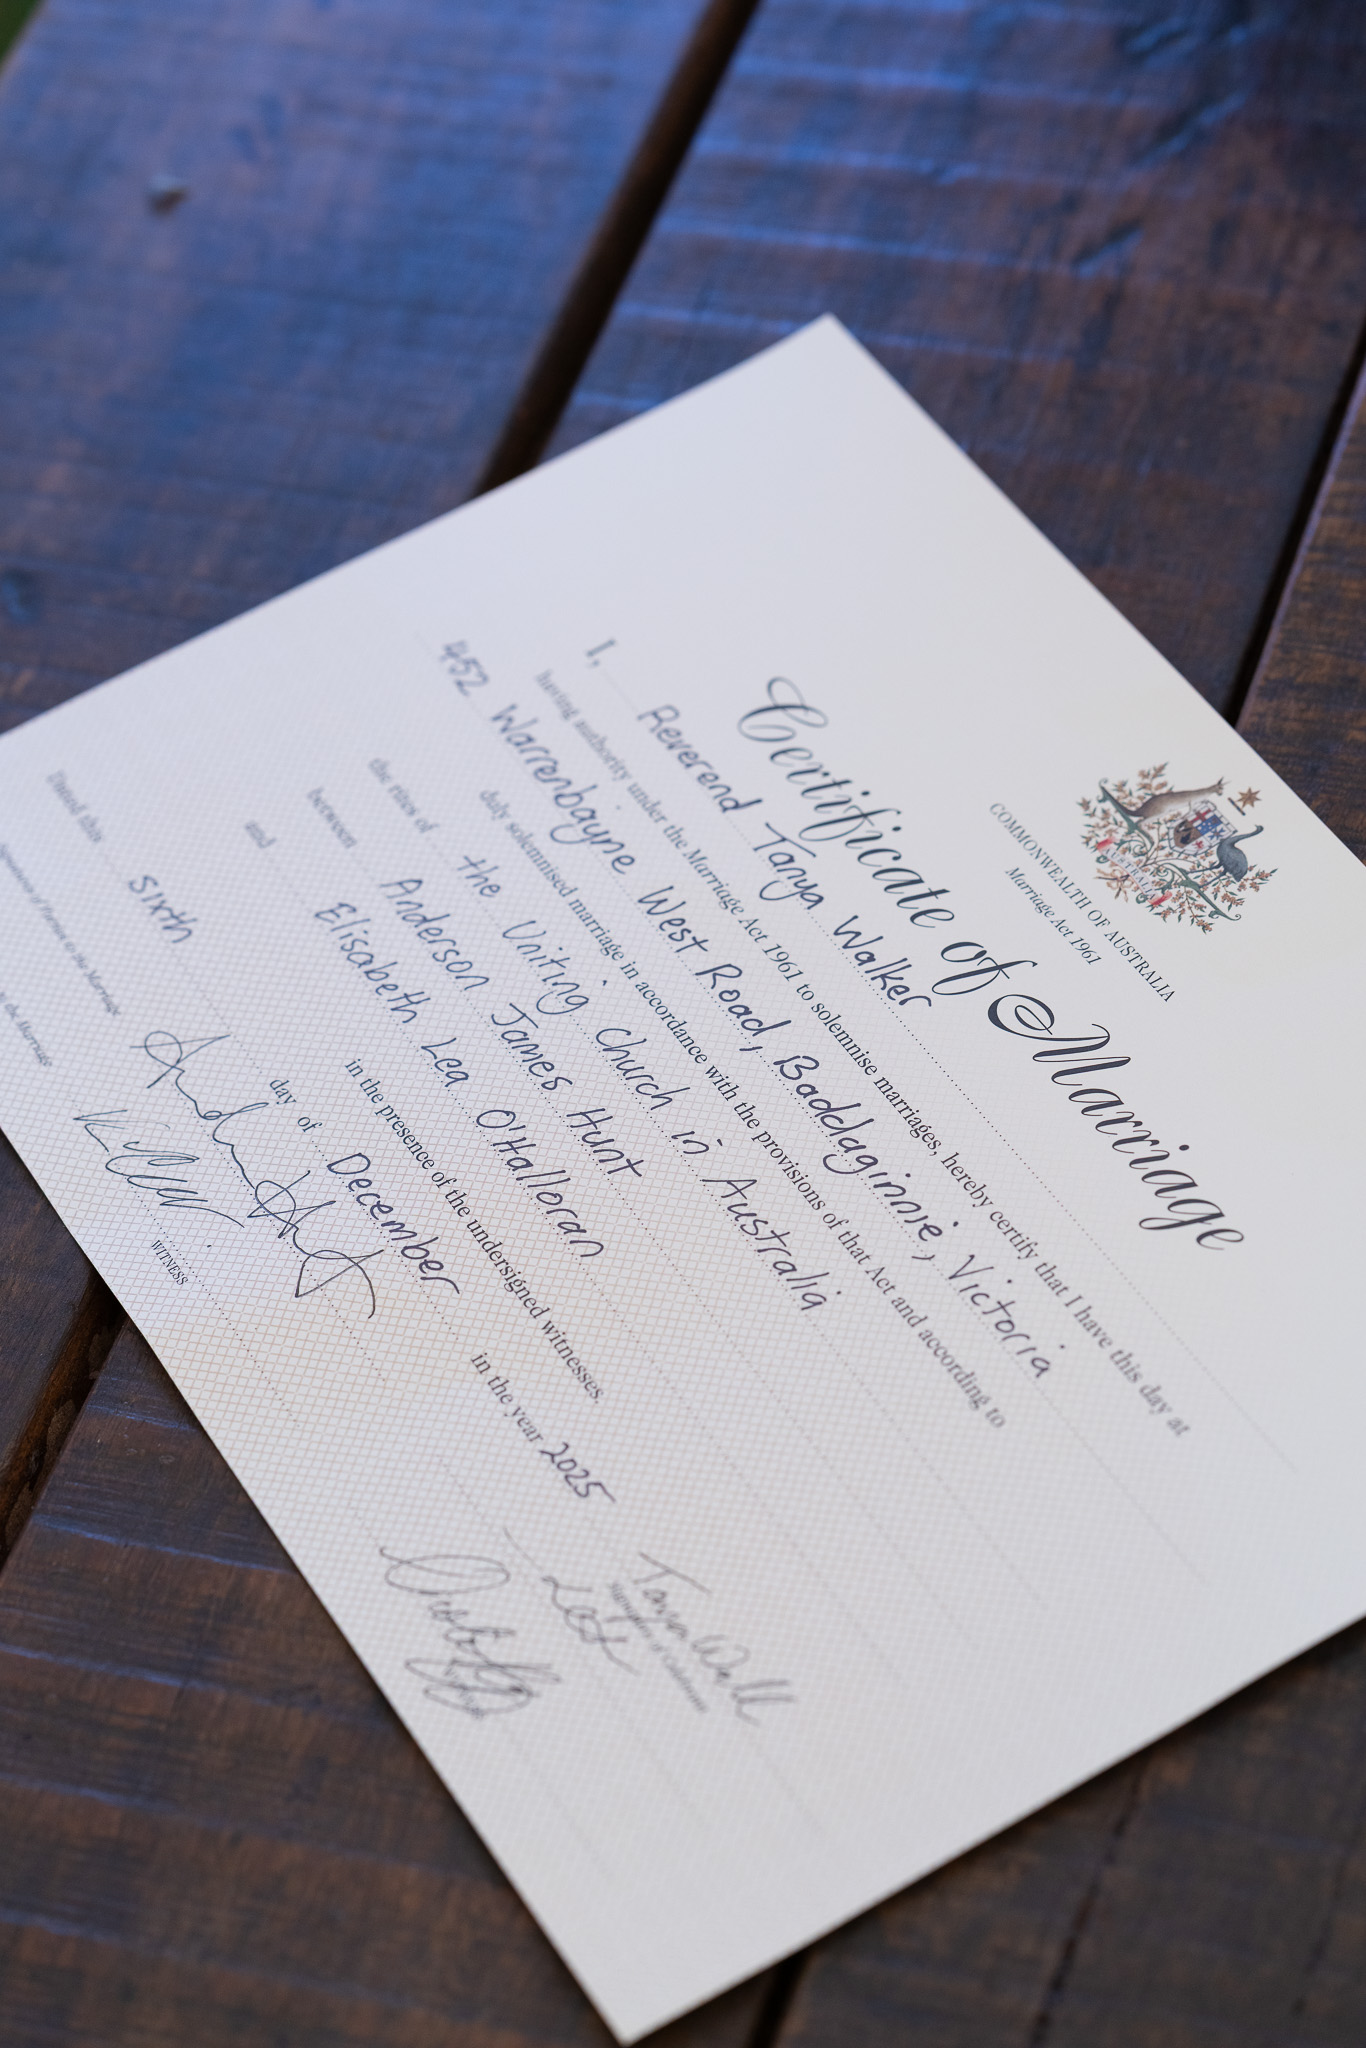 COMMONWEALTH OF AUSTRALIA
Marriage Act 1961
Certificate of Marriage
I, Reverend Tanya Walker
having authority under the Marriage Act 1961 to solemnise marriages, hereby certify that I have this day at
452 Warrenbayne West Road, Baddaginnie, Victoria
duly solemnised marriage in accordance with the provisions of that Act and according to
the rites of the Uniting Church in Australia
between Anderson James Hunt
and Elisabeth Lea O'Halloran
in the presence of the undersigned witnesses.
Dated this sixth day of December in the year 2025
Signatures of Parties to the Marriage
Signature of Celebrant
to the Marriage
WITNESS